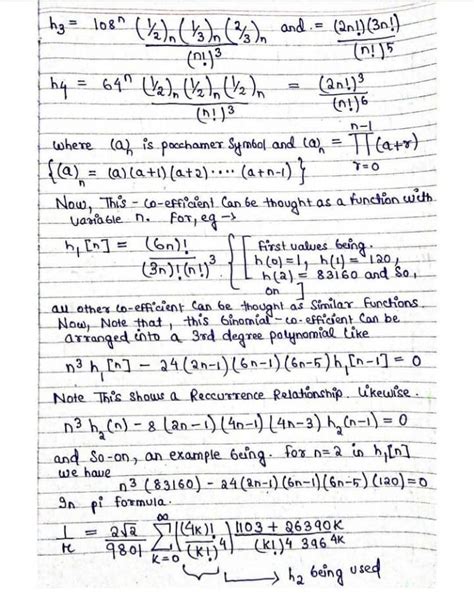 h₃ = 108ⁿ (½)ₙ (⅓)ₙ (⅔)ₙ / (n!)³ and . = (2n!)(3n!) / (n!)⁵
h₄ = 64ⁿ (½)ₙ (½)ₙ (½)ₙ / (n!)³ = (2n!)³ / (n!)⁶
where (a)ₙ is pocchamer Symbol and (a)ₙ = ∏_{r=0}^{n-1} (a+r)
{(a)ₙ = (a)(a+1)(a+2)....(a+n-1)}
Now, This - co-efficient Can be thought as a function with
variable n. For, eg →
h₁[n] = (6n)! / (3n)!(n!)³ {[ first values being.
h(0)=1, h(1)=120,
h(2) = 83160 and So,
on ]
all other co-efficient Can be thought as Similar functions.
Now, Note that, this Binomial-co-efficient Can be
arranged into a 3rd degree polynomial like
n³ h₁[n] - 24(2n-1)(6n-1)(6n-5) h₁[n-1] = 0
Note This shows a Reccurrence Relationship. Likewise.
n³ h₂(n) - 8(2n-1)(4n-1)(4n-3) h₂(n-1) = 0
and So-on, an example being. for n=2 in h₁[n]
we have
n³ (83160) - 24(2n-1)(6n-1)(6n-5)(120) = 0
In pi formula.
1/π = 2√2/9801 ∑_{k=0}^{∞} ((4k)!/(k!)⁴) (1103 + 26390k)/((k!)⁴ 396⁴ᵏ)
→ h₂ being used